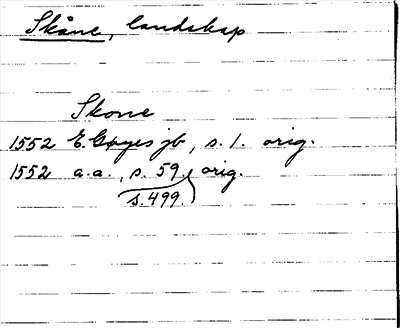 Skåne, landskap
Skone
1552 E. Gøyes jb, s. 1. orig.
1552 a.a., s. 59. orig.
s. 499.)